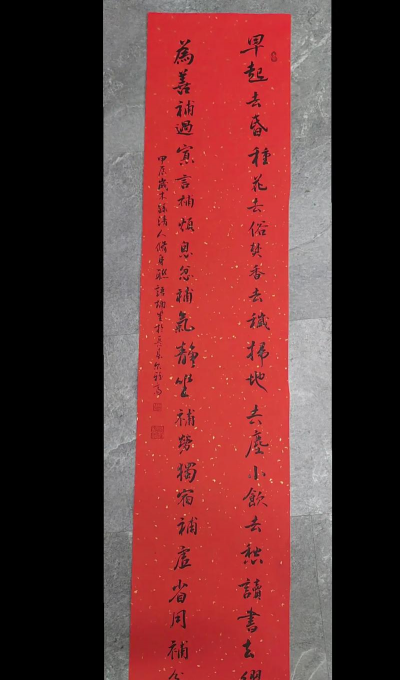 早起去昏種花去俗焚香去穢掃地去塵小飲去愁讀書去
為善補過寡言補煩息忿補氣靜坐補勞獨宿補虛省用補
甲辰歲末錄清人修身聯語